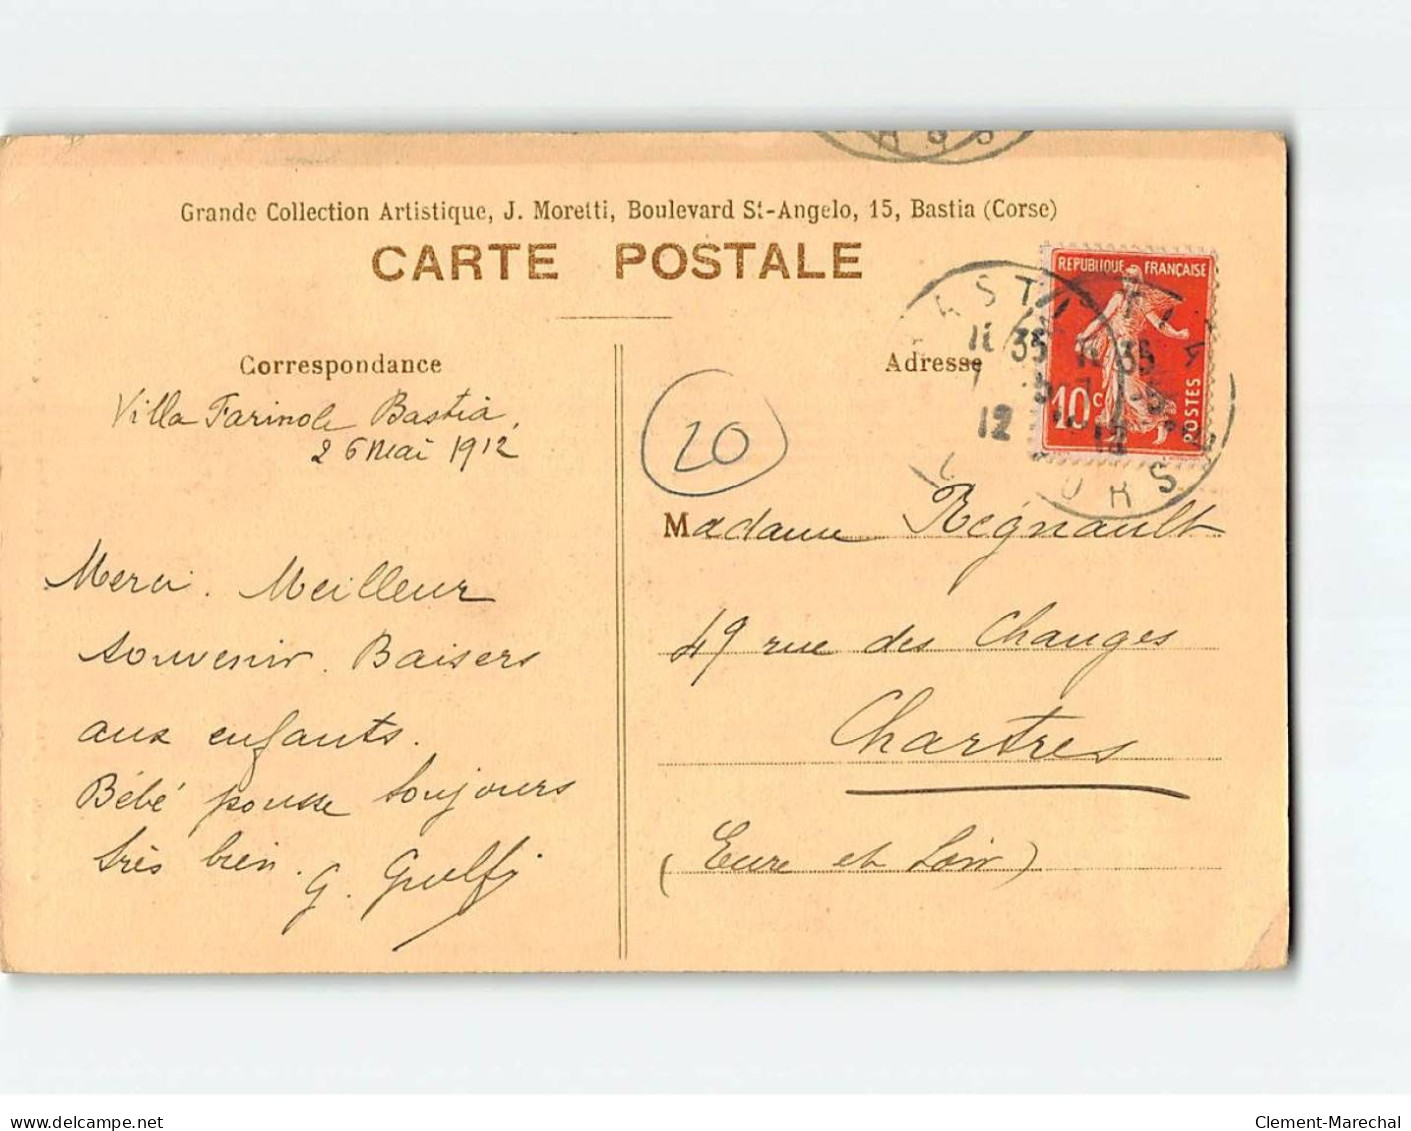 Grande Collection Artistique, J. Moretti, Boulevard St-Angelo, 15, Bastia (Corse)
CARTE POSTALE
REPUBLIQUE FRANÇAISE
10c
POSTES
BASTIA
11 35
12
CORSE
Correspondance
Adresse
Villa Farinole Bastia,
26 Mai 1912
20
Merci. Meilleur
souvenir. Baisers
aux enfants.
Bébé pousse toujours
très bien.
G. Guelfi
Madame Regnault
49 rue des Changes
Chartres
(Eure et Loir)
www.delcampe.net
Clement-Marechal